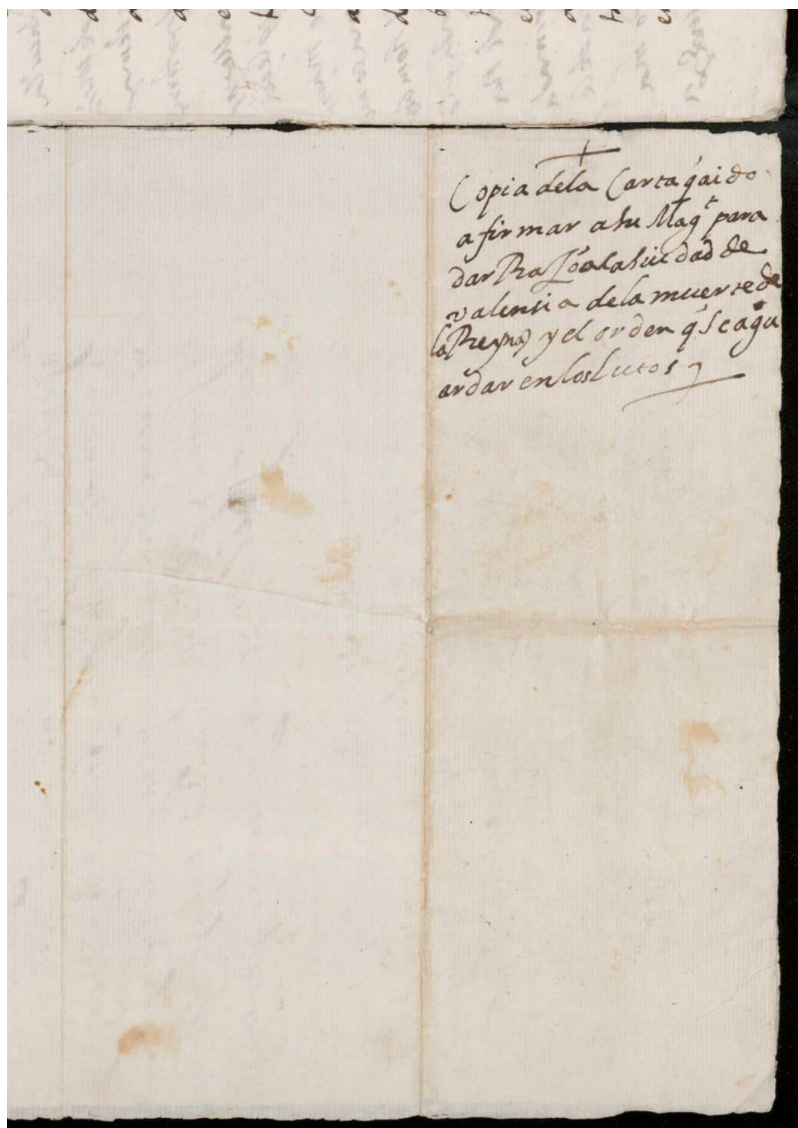 Copia dela Carta q̃ai do
a firmar a Su Mag.^t para
dar Razõ ala Siudad de
valensia dela muerte de
la Reyna y el orden q̃ Se a gu
ardar en los Lutos